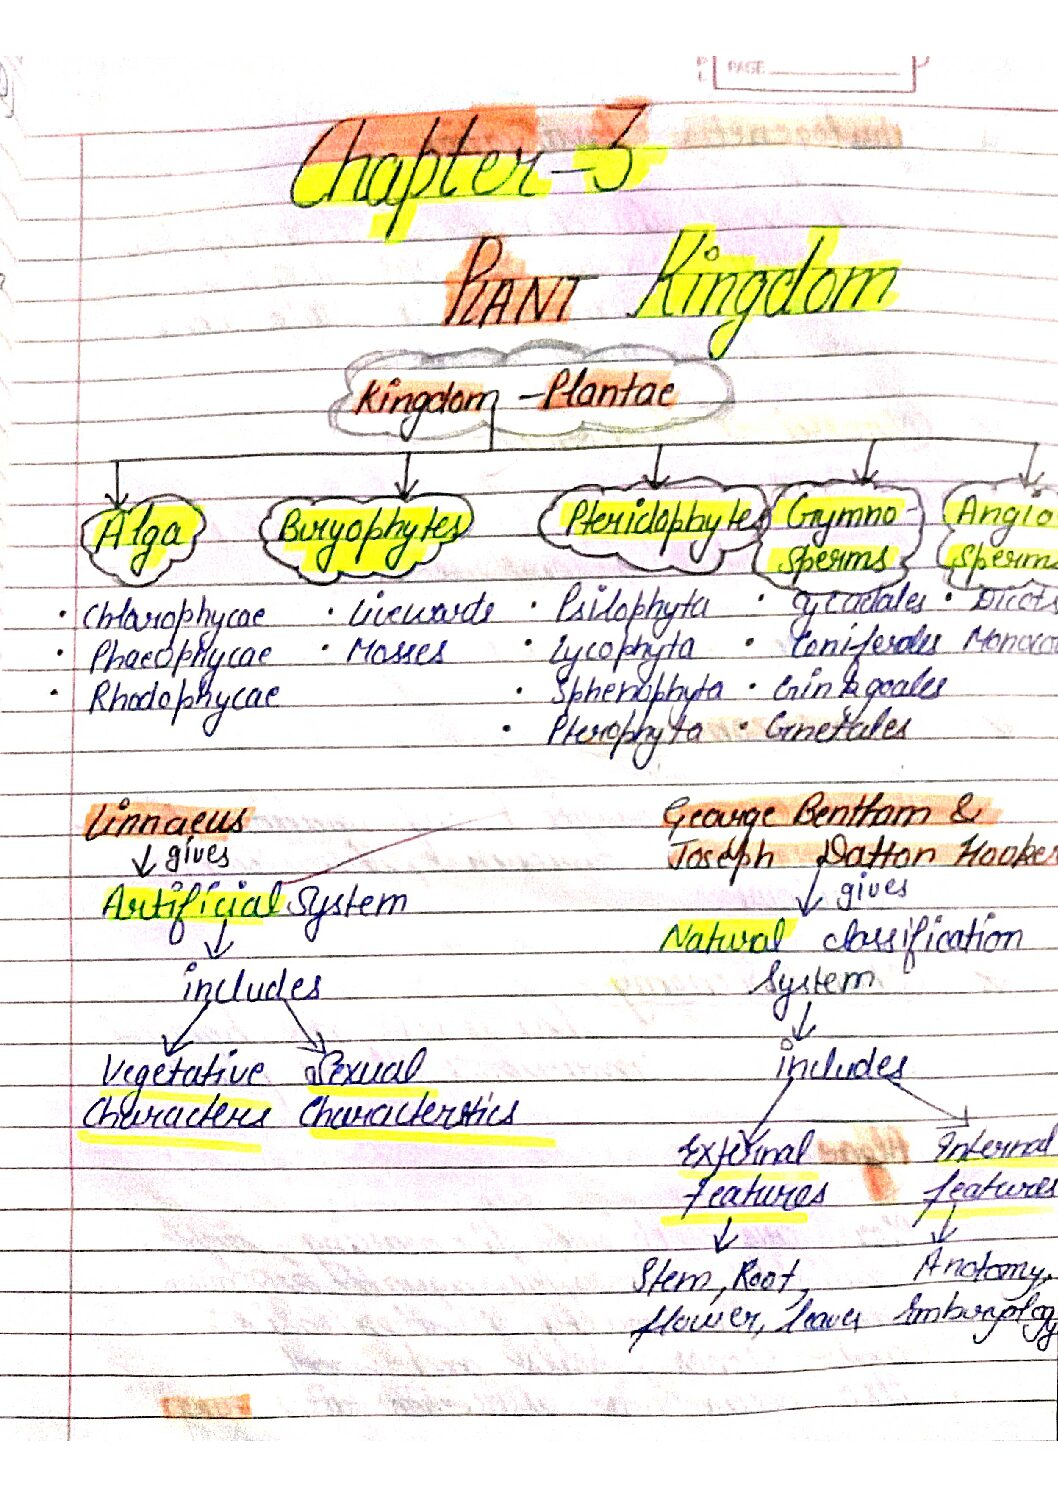 PAGE
Chapter-3
PLANT Kingdom
Kingdom - Plantae
Alga Boryophytes Pteridophyte Gymno- Angio
Sperms Sperms
• Chlorophycae • Liverwards • Psilophyta • Cycadales • Dicots
• Phaeophycae • Mosses • Lycophyta • Coniferales Monoco
• Rhodophycae • Sphenophyta • Ginkgoales
• Pterophyta • Gnetales
Linnaeus George Bentham &
gives Joseph Datton Hooker
Artificial System gives
Natural classification
includes System
Vegetative Sexual includes
Characters Characterstics
External Internal
features features
Stem, Root, Anatomy,
flower, leaves Emburyology